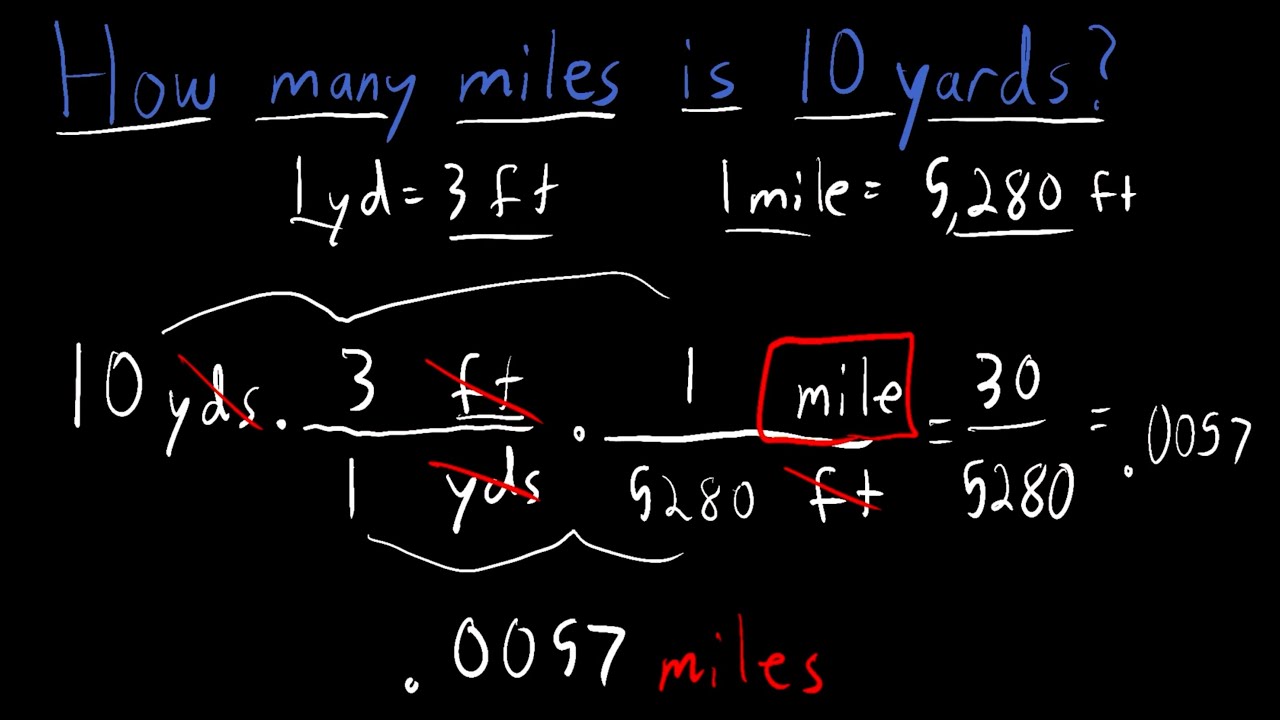 How many miles is 10 yards?
1yd = 3 ft 1 mile = 5,280 ft
10 yds . 3 ft / 1 yds . 1 mile / 5280 ft = 30 / 5280 = .0057
.0057 miles